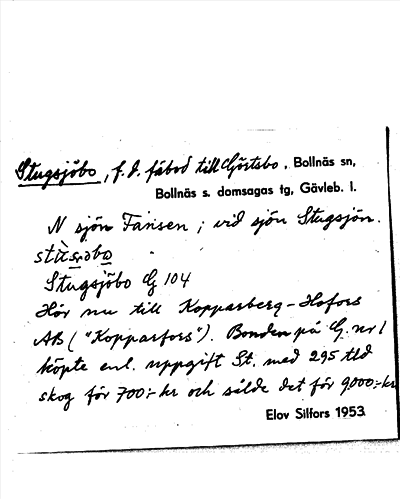 Stugsjöbo, f. d. fäbod till Görtsbo. Bollnäs sn,
Bollnäs s. domsagas tg, Gävleb. l.
N sjön Fänsen; vid sjön Stugsjön.
Stugsjöbo G 104
Hör nu till Kopparberg-Hofors
AB ("Kopparfors"). Bonden på G. nr 1
köpte enl. uppgift St. med 295 tld
skog för 700:- kr och sålde det för 9000:- kr
Elov Silfors 1953